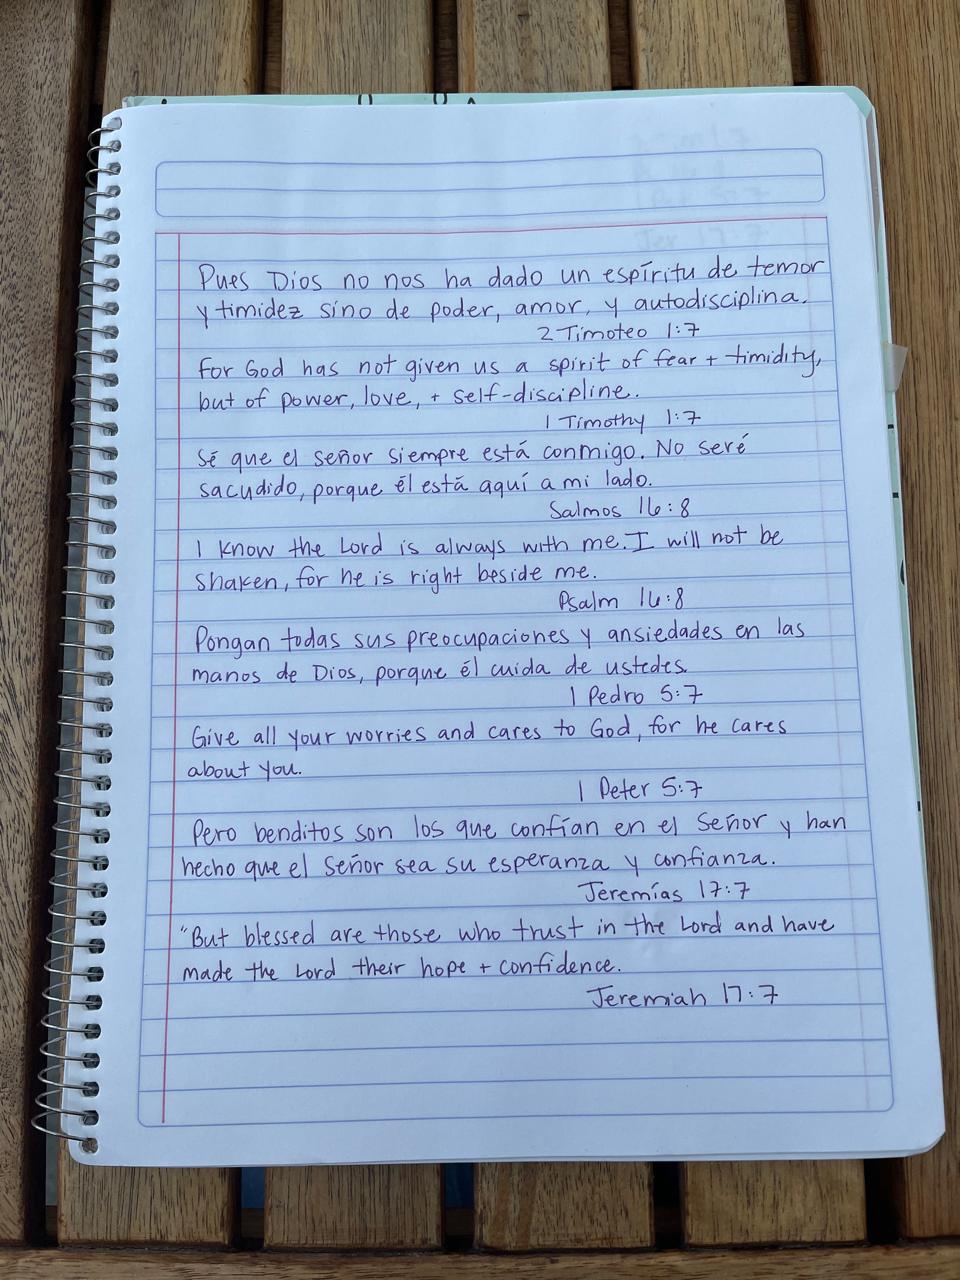 Pues Dios no nos ha dado un espíritu de temor
y timidez sino de poder, amor, y autodisciplina.
2 Timoteo 1:7
For God has not given us a spirit of fear + timidity,
but of power, love, + self-discipline.
1 Timothy 1:7
Sé que el señor siempre está conmigo. No seré
sacudido, porque él está aquí a mi lado.
Salmos 16:8
I know the Lord is always with me. I will not be
shaken, for he is right beside me.
Psalm 16:8
Pongan todas sus preocupaciones y ansiedades en las
manos de Dios, porque él cuida de ustedes.
1 Pedro 5:7
Give all your worries and cares to God, for he cares
about you.
1 Peter 5:7
Pero benditos son los que confían en el Señor y han
hecho que el Señor sea su esperanza y confianza.
Jeremías 17:7
"But blessed are those who trust in the Lord and have
made the Lord their hope + confidence.
Jeremiah 17:7